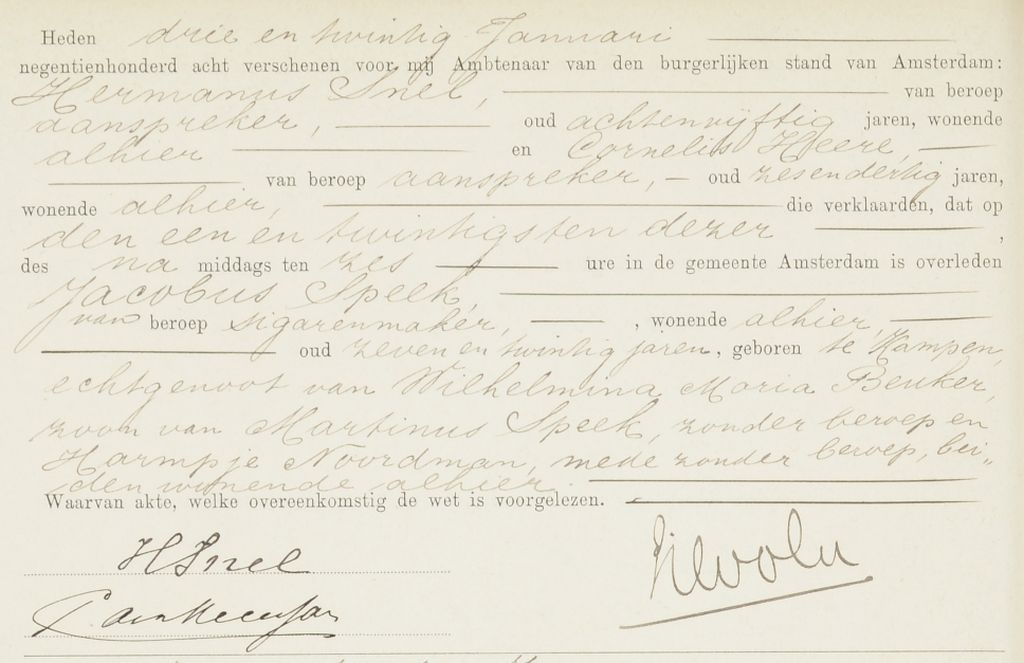 Heden drie en twintig Januari
negentienhonderd acht verschenen voor mij Ambtenaar van den burgerlijken stand van Amsterdam:
Hermanus Snel, van beroep
aanspreker, oud achtenvijftig jaren, wonende
alhier en Cornelis Heere,
van beroep aanspreker, oud zesendertig jaren,
wonende alhier, die verklaarden, dat op
den een en twintigsten dezer,
des na middags ten zes ure in de gemeente Amsterdam is overleden
Jacobus Speek,
van beroep sigarenmaker, , wonende alhier,
oud zeven en twintig jaren, geboren te Kampen,
echtgenoot van Wilhelmina Maria Beuker,
zoon van Martinus Speek, zonder beroep en
Harmpje Noordman, mede zonder beroep, bei„
den wonende alhier.
Waarvan akte, welke overeenkomstig de wet is voorgelezen.
H Snel